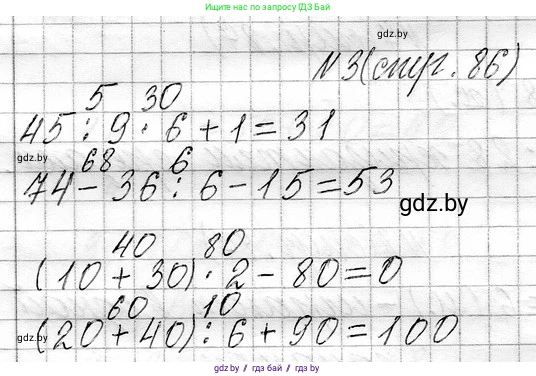 Пишите нам по запросу ГДЗ Бай
gdz.by
N 3 (стр. 86)
5 30
45 : 9 · 6 + 1 = 31
gdz.by
68 6
74 - 36 : 6 - 15 = 53
gdz.by
40 80
(10 + 30) · 2 - 80 = 0
60 10
(20 + 40) : 6 + 90 = 100
gdz.by
gdz.by / гдз бай / gdz.by